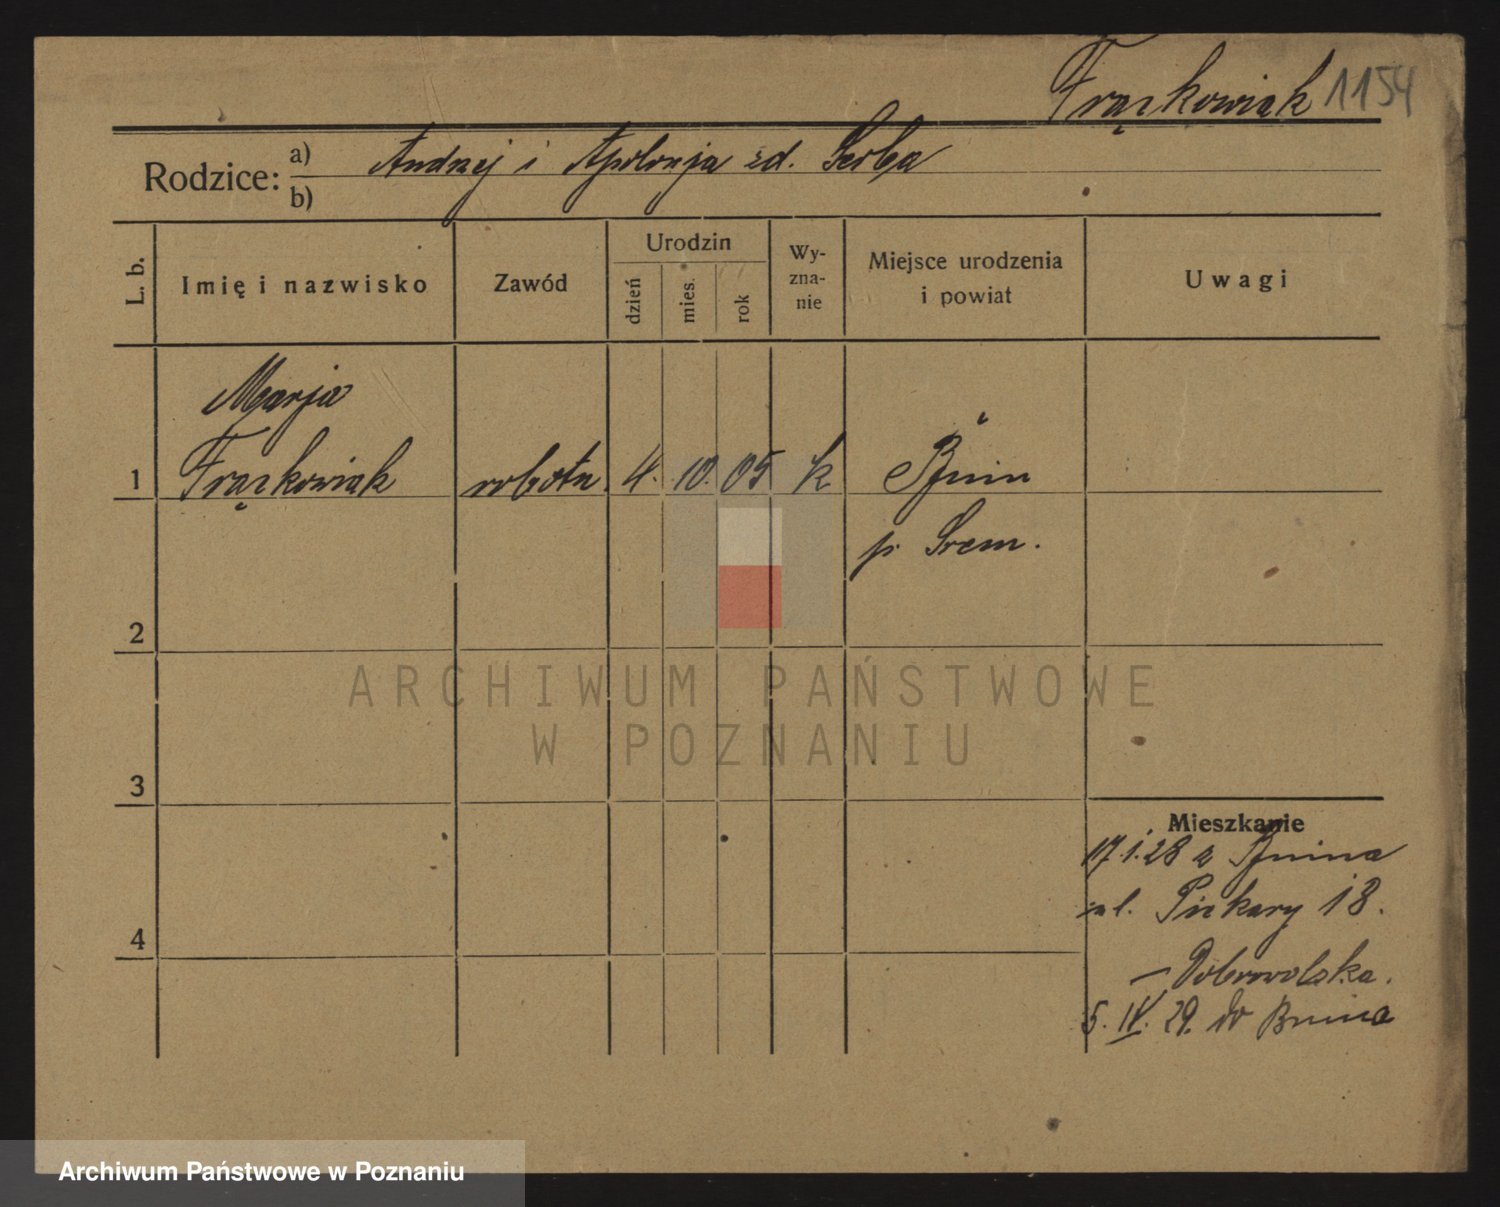 Frąckowiak 1154
Rodzice: a) Andrzej i Apolonja zd. Serba
b)
L. b.
Imię i nazwisko
Zawód
Urodzin
dzień
mies.
rok
Wy-
zna-
nie
Miejsce urodzenia
i powiat
Uwagi
Marja
1 Frąckowiak robotn. 4. 10. 05 k Bnin
p. Srem.
2
3
4
Mieszkanie
17.1.28 z Bnina
ul. Piekary 18.
– Dobrowolska.
5. IV. 29. do Bnina
ARCHIWUM PAŃSTWOWE
W POZNANIU
Archiwum Państwowe w Poznaniu